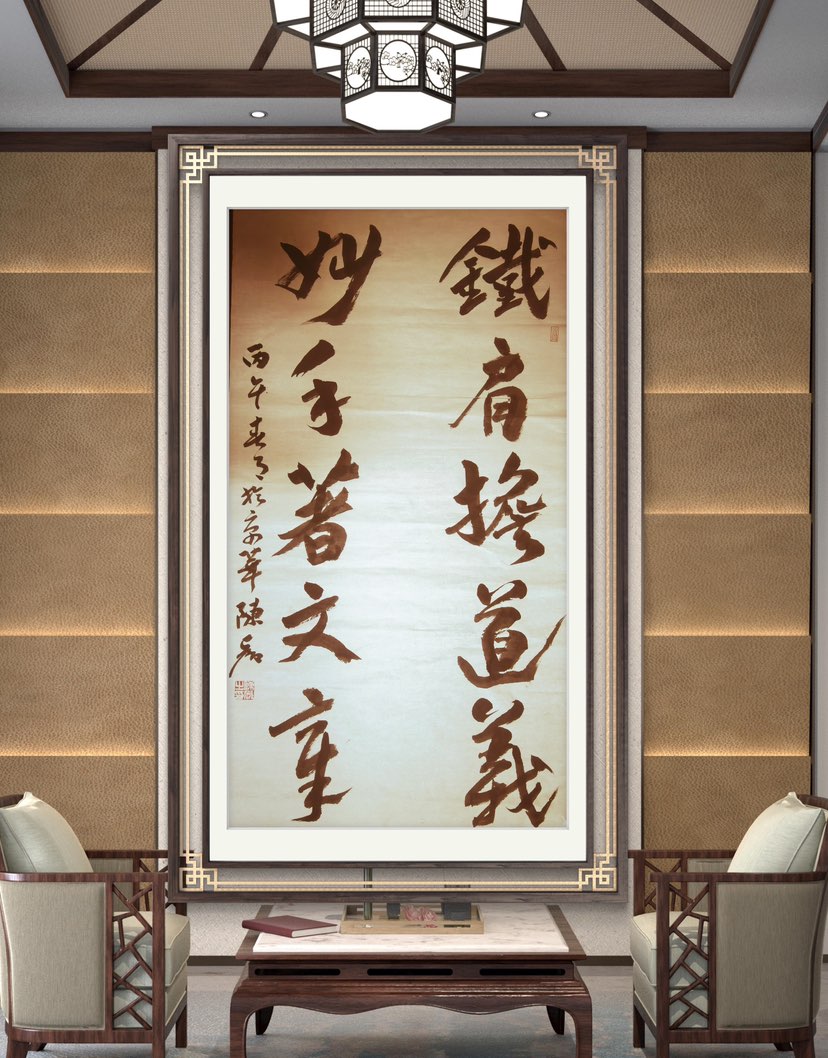 鐵肩擔道義
妙手著文章
丙午春月於京華陳